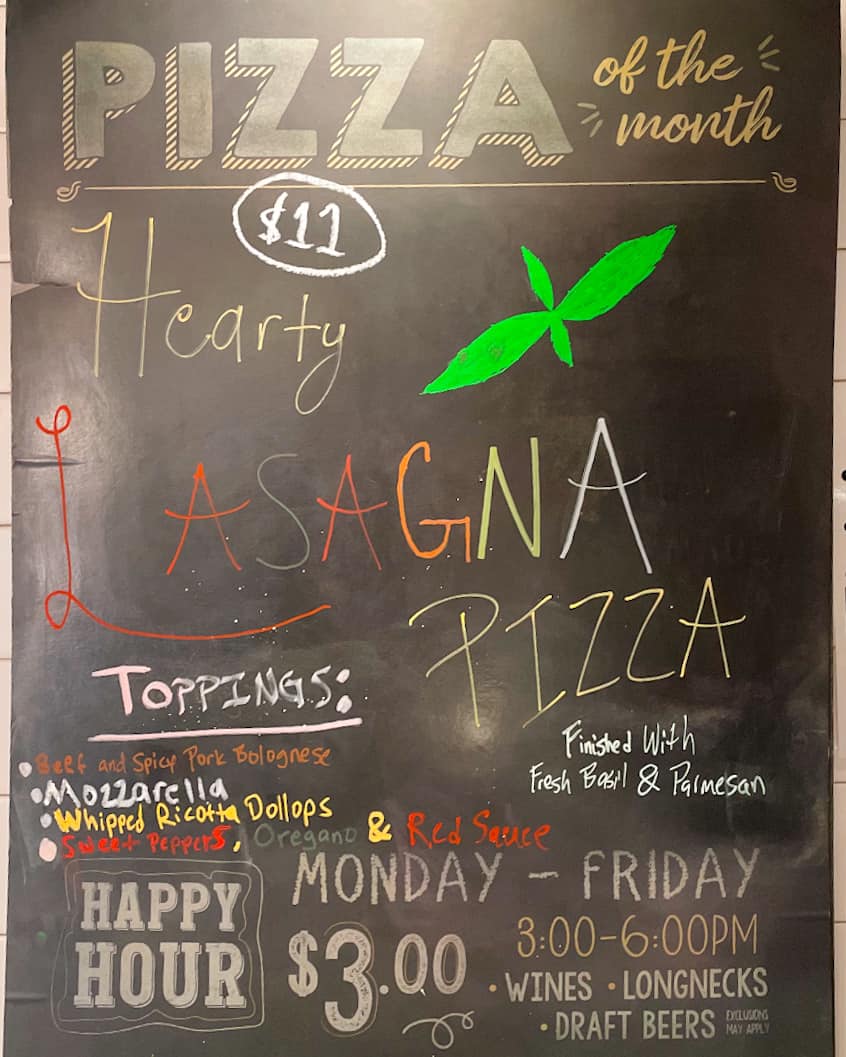 PIZZA of the
month
$11
Hearty
LASAGNA
PIZZA
TOPPINGS:
• Beef and Spicy Pork Bolognese
• Mozzarella
• Whipped Ricotta Dollops
• Sweet Peppers, Oregano & Red Sauce
Finished With
Fresh Basil & Parmesan
HAPPY
HOUR
MONDAY - FRIDAY
$3.00
3:00-6:00PM
• WINES • LONGNECKS
• DRAFT BEERS EXCLUSIONS
MAY APPLY